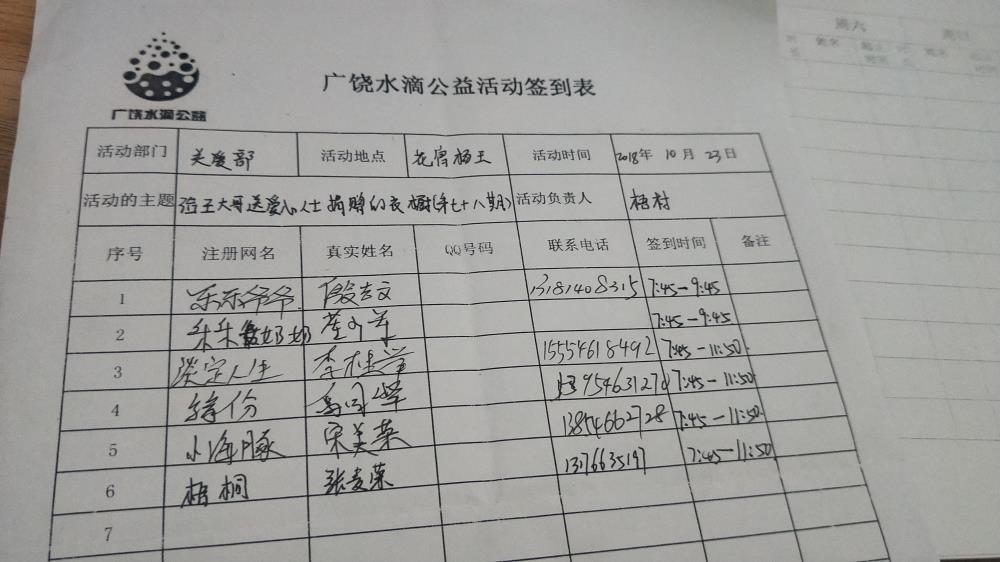 广饶水滴公益
广饶水滴公益活动签到表
活动部门 关爱部 活动地点 花官杨王 活动时间 2018年 10月 23日
活动的主题 大哥送爱心人士捐赠的衣橱(第七十八期) 活动负责人 梧村
序号 注册网名 真实姓名 QQ号码 联系电话 签到时间 备注
1 乐乐爷爷 13181408315 7:45-9:45
2 乐乐奶奶 7:45-9:45
3 淡定人生 李桂 15554618492 7:45-11:50
4 缘份 7:45-11:50
5 小海豚 宋美荣 13854662728 7:45-11:50
6 梧桐 张麦荣 7:45-11:50
7
周六
姓名 姓名